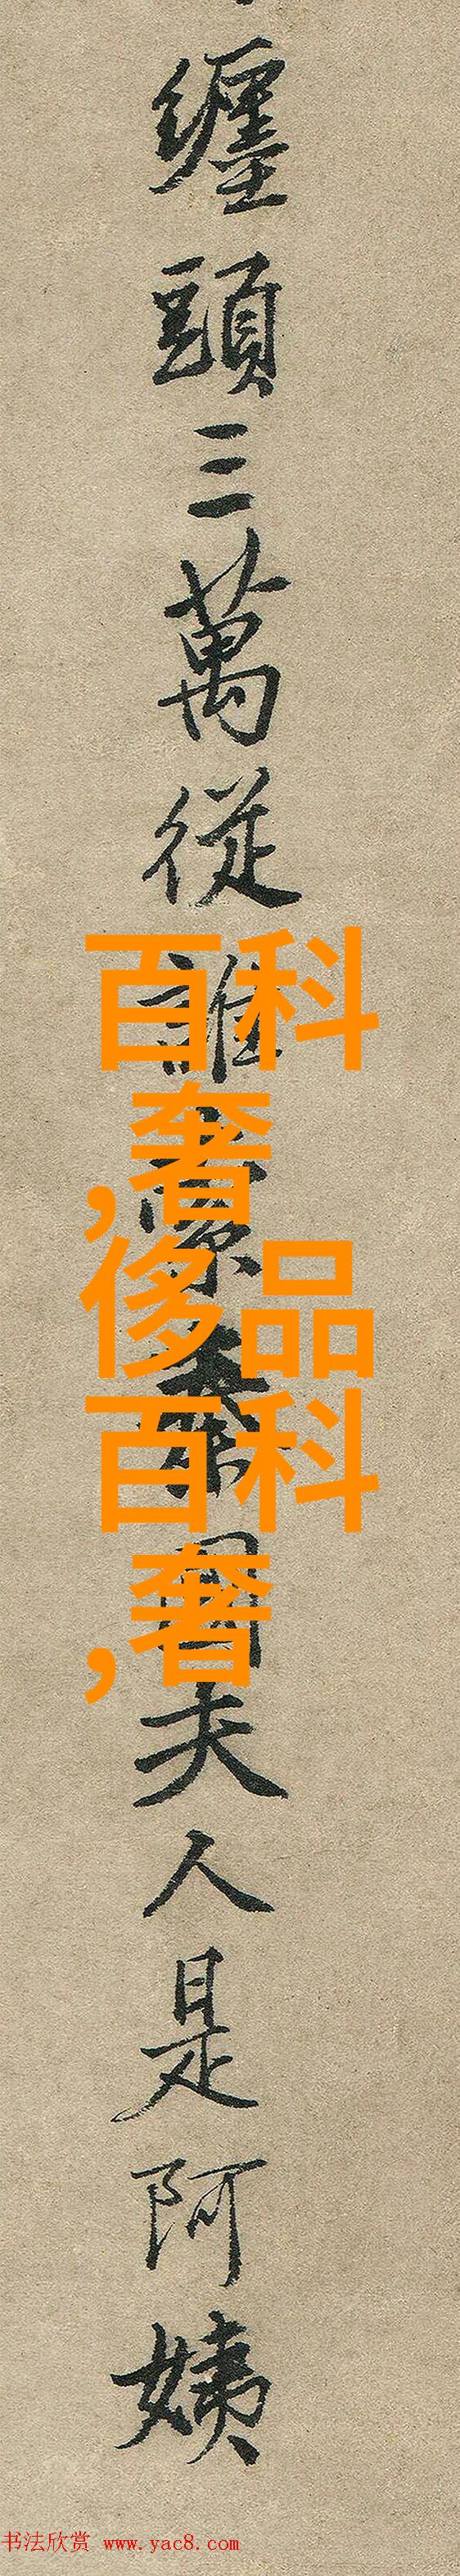 纏頭三萬從誰索秦國夫人是阿姨
百科
,奢
侈品
百科
,奢
书法欣赏 www.yac8.com